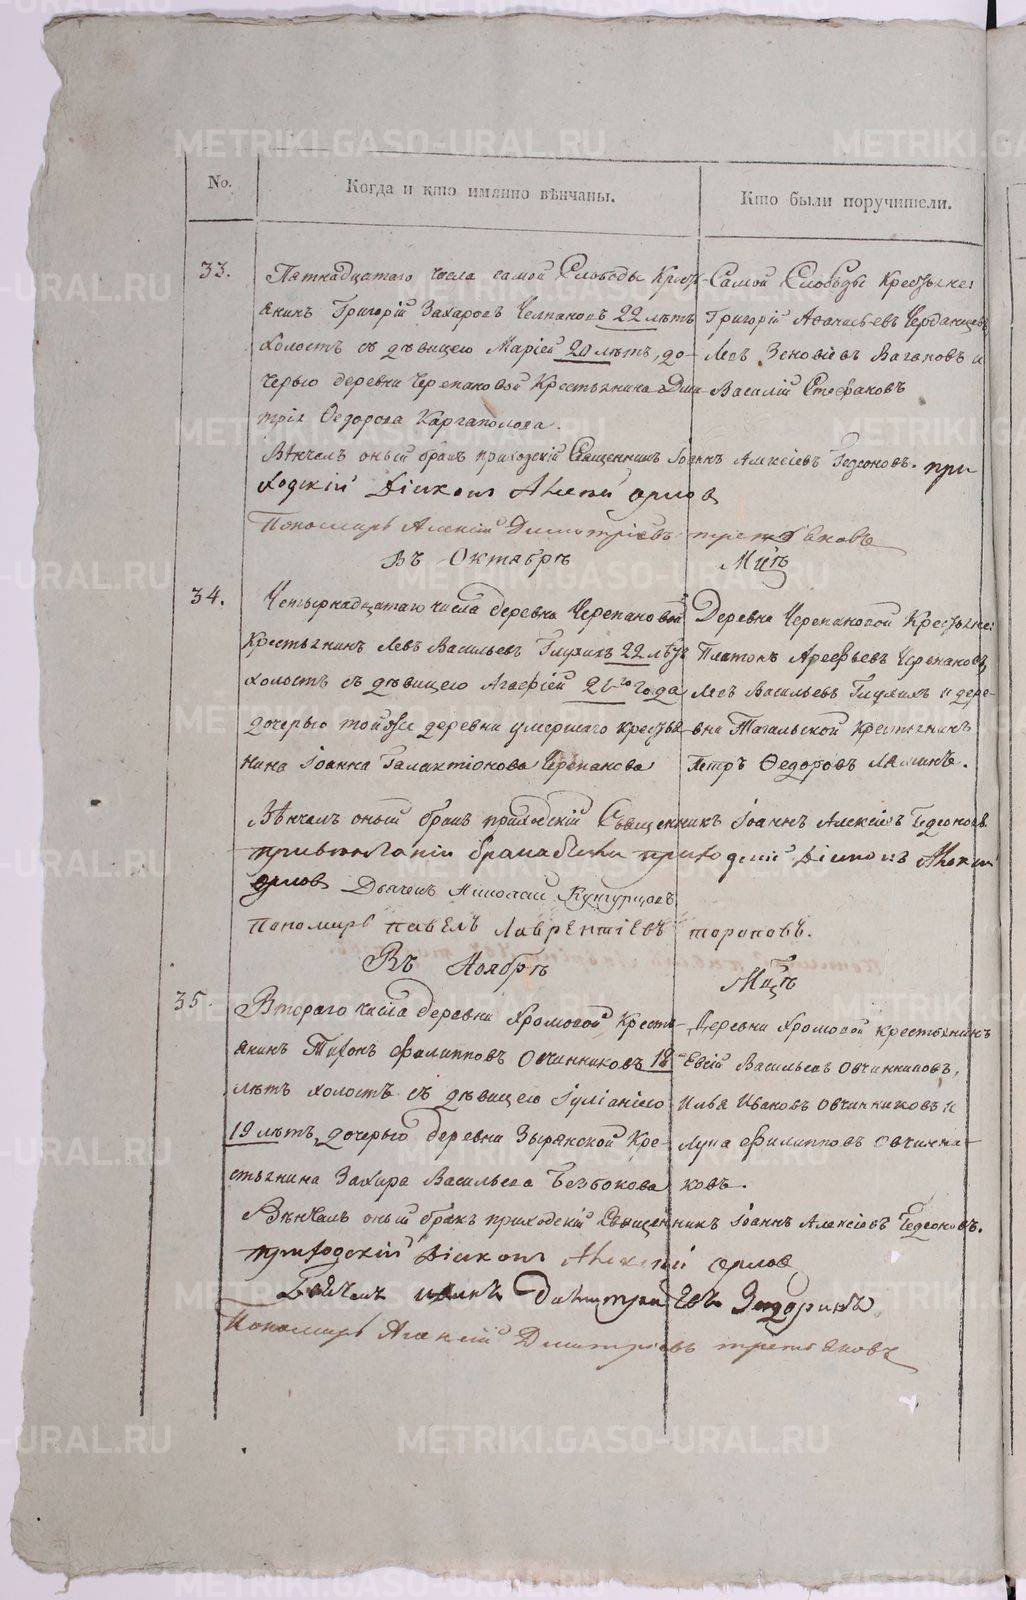 No. Когда и кто имянно вѣнчаны. Кто были поручители.
33. Пятнадцатаго числа самой Слободы Кресть-
янинъ Григорій Захаровъ Челпановъ 22 лѣтъ
холостъ съ дѣвицею Маріей 20 лѣтъ, до-
черью деревни Черепановой Крестьянина Дми
трія Ѳедорова Каргаполова.
Самой Слободы Крестьяне:
Григорій Аѳанасьевъ Черданцевъ
Левъ Зеновіевъ Вагановъ и
Василій Стефановъ
Вѣнчалъ оный бракъ приходскій Священникъ Іоаннъ Алексіевъ Гедеоновъ. при
ходскій Діяконъ Алексѣй орловъ
Пономарь Алексій Димитріевъ третьяковъ
Въ Октябрѣ Мцѣ
34. Четырнадцатаго числа деревни Черепановой
Крестьянинъ Левъ Васильевъ Глухихъ 22 лѣтъ
холостъ съ дѣвицею Агафіей 21-го года
дочерью тойже деревни умершаго крестья
нина Іоанна Галактіонова Черепанова
Деревни Черепановой Крестьяне:
Платонъ Арефьевъ Черепановъ,
Левъ Васильевъ Глухихъ и дере-
вни Тагильской Крестьянинъ
Петръ Ѳедоровъ Ляминъ.
Вѣнчалъ оный бракъ приходскій Священникъ Іоаннъ Алексіевъ Гедеоновъ.
приходскій Діяконъ Алексій
орловъ Дьячекъ Николай Кунгурцовъ
Пономарь павелъ Лаврентіевъ тороповъ.
Въ Ноябрѣ Мцѣ
35. Втораго числа деревни Хромовой Кресть-
янинъ Тихонъ Филипповъ Овчинниковъ 18
лѣтъ холостъ съ дѣвицею Іуліаніею
19 лѣтъ, дочерью деревни Зырянской Кре-
стьянина Захара Васильева Безбокова
Деревни Хромовой крестьянинъ
Евсій Васильевъ Овчинниковъ,
Илья Ивановъ Овчинниковъ и
Лука Филипповъ Овчинни-
ковъ.
Вѣнчалъ оный бракъ приходскій Священникъ Іоаннъ Алексіевъ Гедеоновъ.
приходскій Діяконъ Алексѣй орловъ
Пономарь Алексій Димитріевъ третьяковъ
METRIKI.GASO-URAL.RU